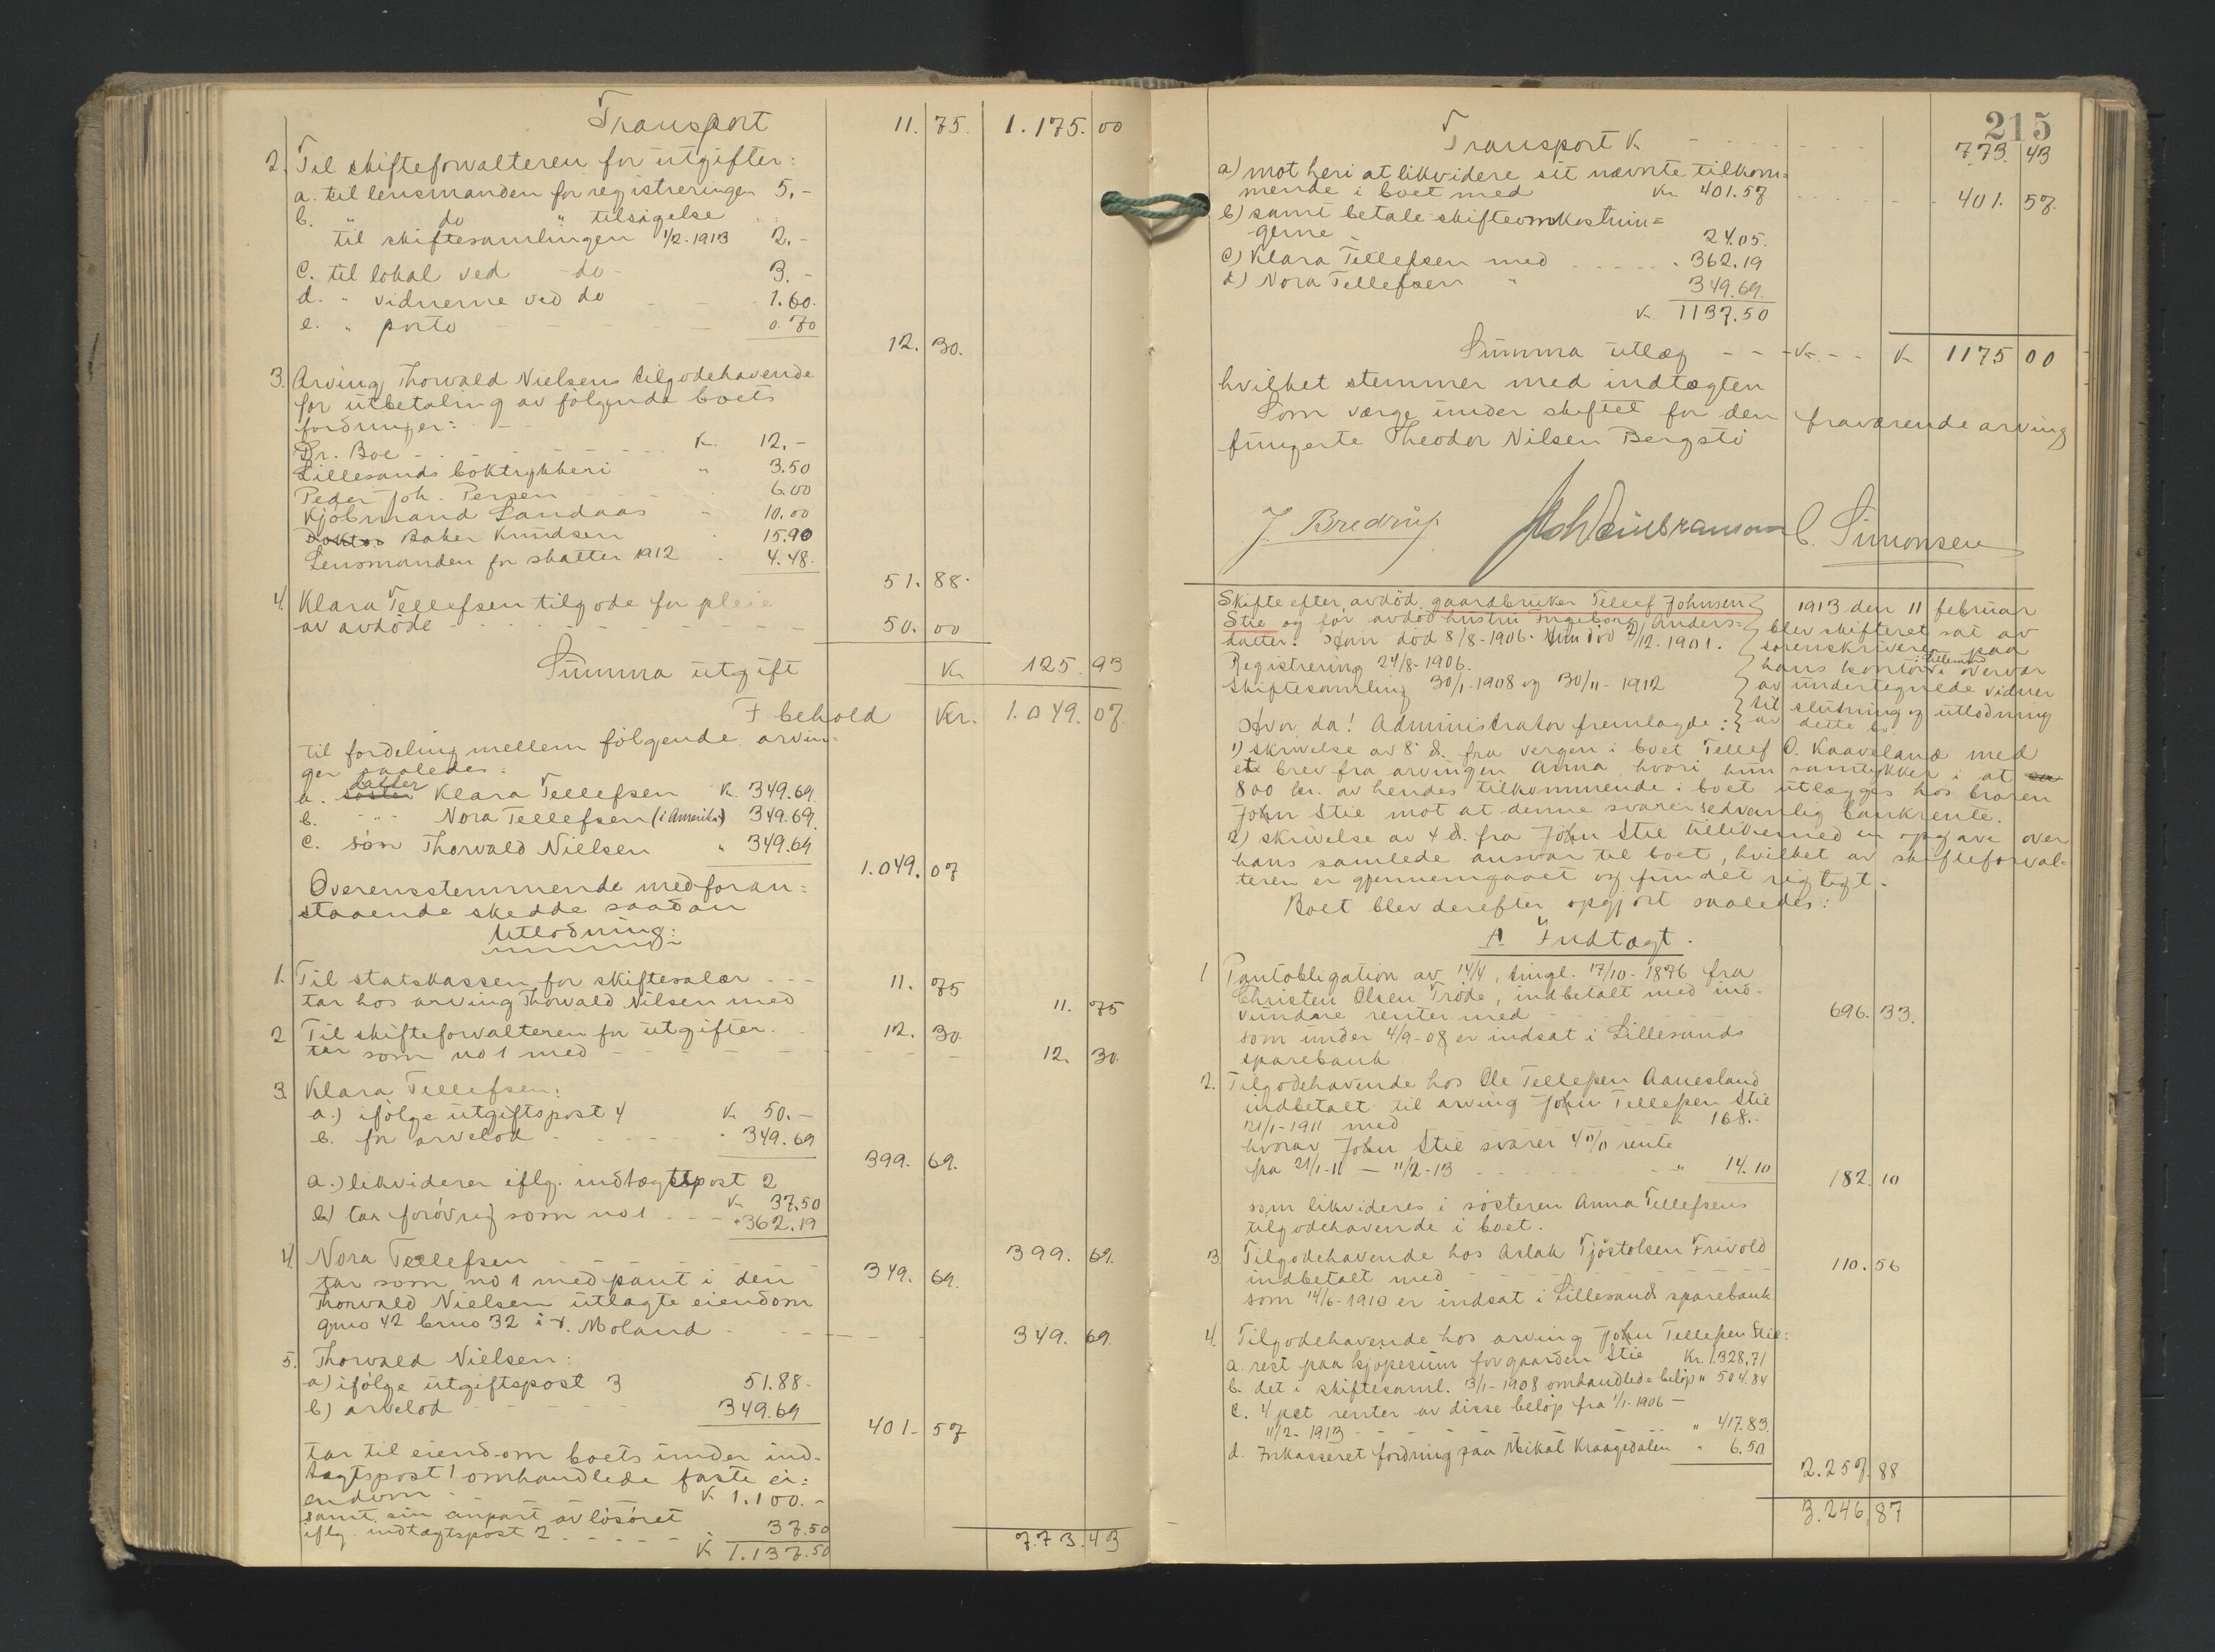 Transport 11. 75. 1.175. 00
2. Til skifteforvalteren for utgifter:
a. til lensmanden for registreringen 5.-
b. " do " tilsigelse
til skiftesamlingen 1/2-1913 2.-
c. til lokal ved -do- 3.-
d. " vidnerne ved do 1.60.
e. " porto 0.70
12. 30.
3. Arving Thorvald Nielsens tilgodehavende
for utbetaling av følgende boets
fordringer:
Dr. Boe K. 12.-
Lillesands boktrykkeri " 3.50
Peder Joh. Persen 6.00
Kjøbmand Landaas 10.00
Doktor Baker Knudsen 15.90
Lensmanden for skatter 1912 4.48.
51. 88.
4. Klara Tellefsen tilgode for pleie
av avdøde 50. 00
Summa utgift K. 125. 93
I behold Kr. 1.049. 07.
til fordeling mellem følgende arvin=
ger saaledes:
datter
a. søster Klara Tellefsen K. 349.69.
b. -"- Nora Tellefsen (i Amerika) 349.69.
c. søn Thorvald Nielsen " 349.69
1.049. 07
Overensstemmende med foran=
staaende skedde saadan
Utlodning:
1. Til statskassen for skiftesalær 11. 75
tar hos arving Thorvald Nilsen med 11. 75
2 Til skifteforvalteren for utgifter. 12. 30.
tar som no 1 med 12. 30.
3. Klara Tellefsen:
a.) ifølge utgiftspost 4 K. 50.-
b. for arvelod 349.69
399. 69.
a.) likviderer iflg. indtægtspost 2
K. 37.50
b) tar forøvrig som no 1 362.19
399. 69.
4. Nora Tellefsen 349. 69.
tar som no 1 med pant i den
Thorvald Nielsen utlagte eiendom
gno 42 bno 32 i V. Moland 349. 69.
5. Thorvald Nielsen:
a) ifølge utgiftspost 3 51.88-
b) arvelod 349.69
401- 57
tar til eiendom boets under ind-
tægtspost 1 omhandlede faste ei=
endom K 1.100.-
samt sin anpart av løsøret
iflg. indtægtspost 2 37.50
K 1.137.50 773. 43
215
Transport K. 773. 43
a) mot heri at likvidere sit nævnte tilkom=
mende i boet med Kr 401.57 401. 57.
b) samt betale skifteomkostnin=
gerne 24.05.
c) Klara Tellefsen med 362.19
d) Nora Tellefsen " 349.69.
K. 1137.50
Summa utlæg K 1175 00
hvilket stemmer med indtægten
Som værge under skiftet for den fraværende arving
fungerte Theodor Nilsen Bergstø
J. Bredrup. C. Simonsen
Skifte efter avdød gaardbruker Tellef Johnsen
Stie og før avdød hustru Ingeborg Anders=
datter. Han død 8/8-1906. Hun død 2/12-1901.
Registrering 24/8-1906.
Skiftesamling 30/1-1908 og 30/11-1912
1913 den 11 februar
blev skifteret sat av
sorenskriveren paa
hans kontor i Lillesand i overvær
av undertegnede vidner
til slutning og utlodning
av dette bo
Hvor da! Administrator fremlagde:
1) skrivelse av 8 d. fra vergen i boet Tellef O. Kaaveland med
et brev fra arvingen Anna hvori hun samtykker i at
800 kr. av hendes tilkommende i boet utlægges hos broren
John Stie mot at denne svarer sedvanlig bankrente.
2) skrivelse av 4 d. fra John Stie tillikemed en opgave over
hans samlede ansvar til boet, hvilket av skifteforval=
teren er gjennemgaaet og fundet rigtigt.
Boet blev derefter opgjort saaledes:
A Indtægt.
1 Pantobligation av 14/4, tingl. 17/10-1876 fra
Christen Olsen Trøde, indbetalt med ind-
vundne renter med 696. 33.
som under 4/9-08 er indsat i Lillesands
sparebank
2. Tilgodehavende hos Ole Tellefsen Aanesland
indbetalt til arving John Tellefsen Stie
21/1-1911 med K 168.-
hvorav John Stie svarer 4 % rente
fra 21/1-11 - 11/2-13 " 14.10
182. 10
som likvideres i søsteren Anna Tellefsens
tilgodehavende i boet.
3. Tilgodehavende hos Aslak Tjøstolsen Frivold
indbetalt med 110. 56
som 14/6-1910 er indsat i Lillesands sparebank
4. Tilgodehavende hos arving John Tellefsen Stie:
a. rest paa kjøpesum for gaarden Stie Kr. 1.328,71
b. det i skiftesaml. 3/1-1908 omhandlede beløp " 504.84
c. 4 pct renter av disse beløp fra 1/1-1906 -
11/2-1913 " 417.83.
d. Inkasseret fordring paa Mikal Kraagedalen " 6.50
2.257. 88
3.246, 87